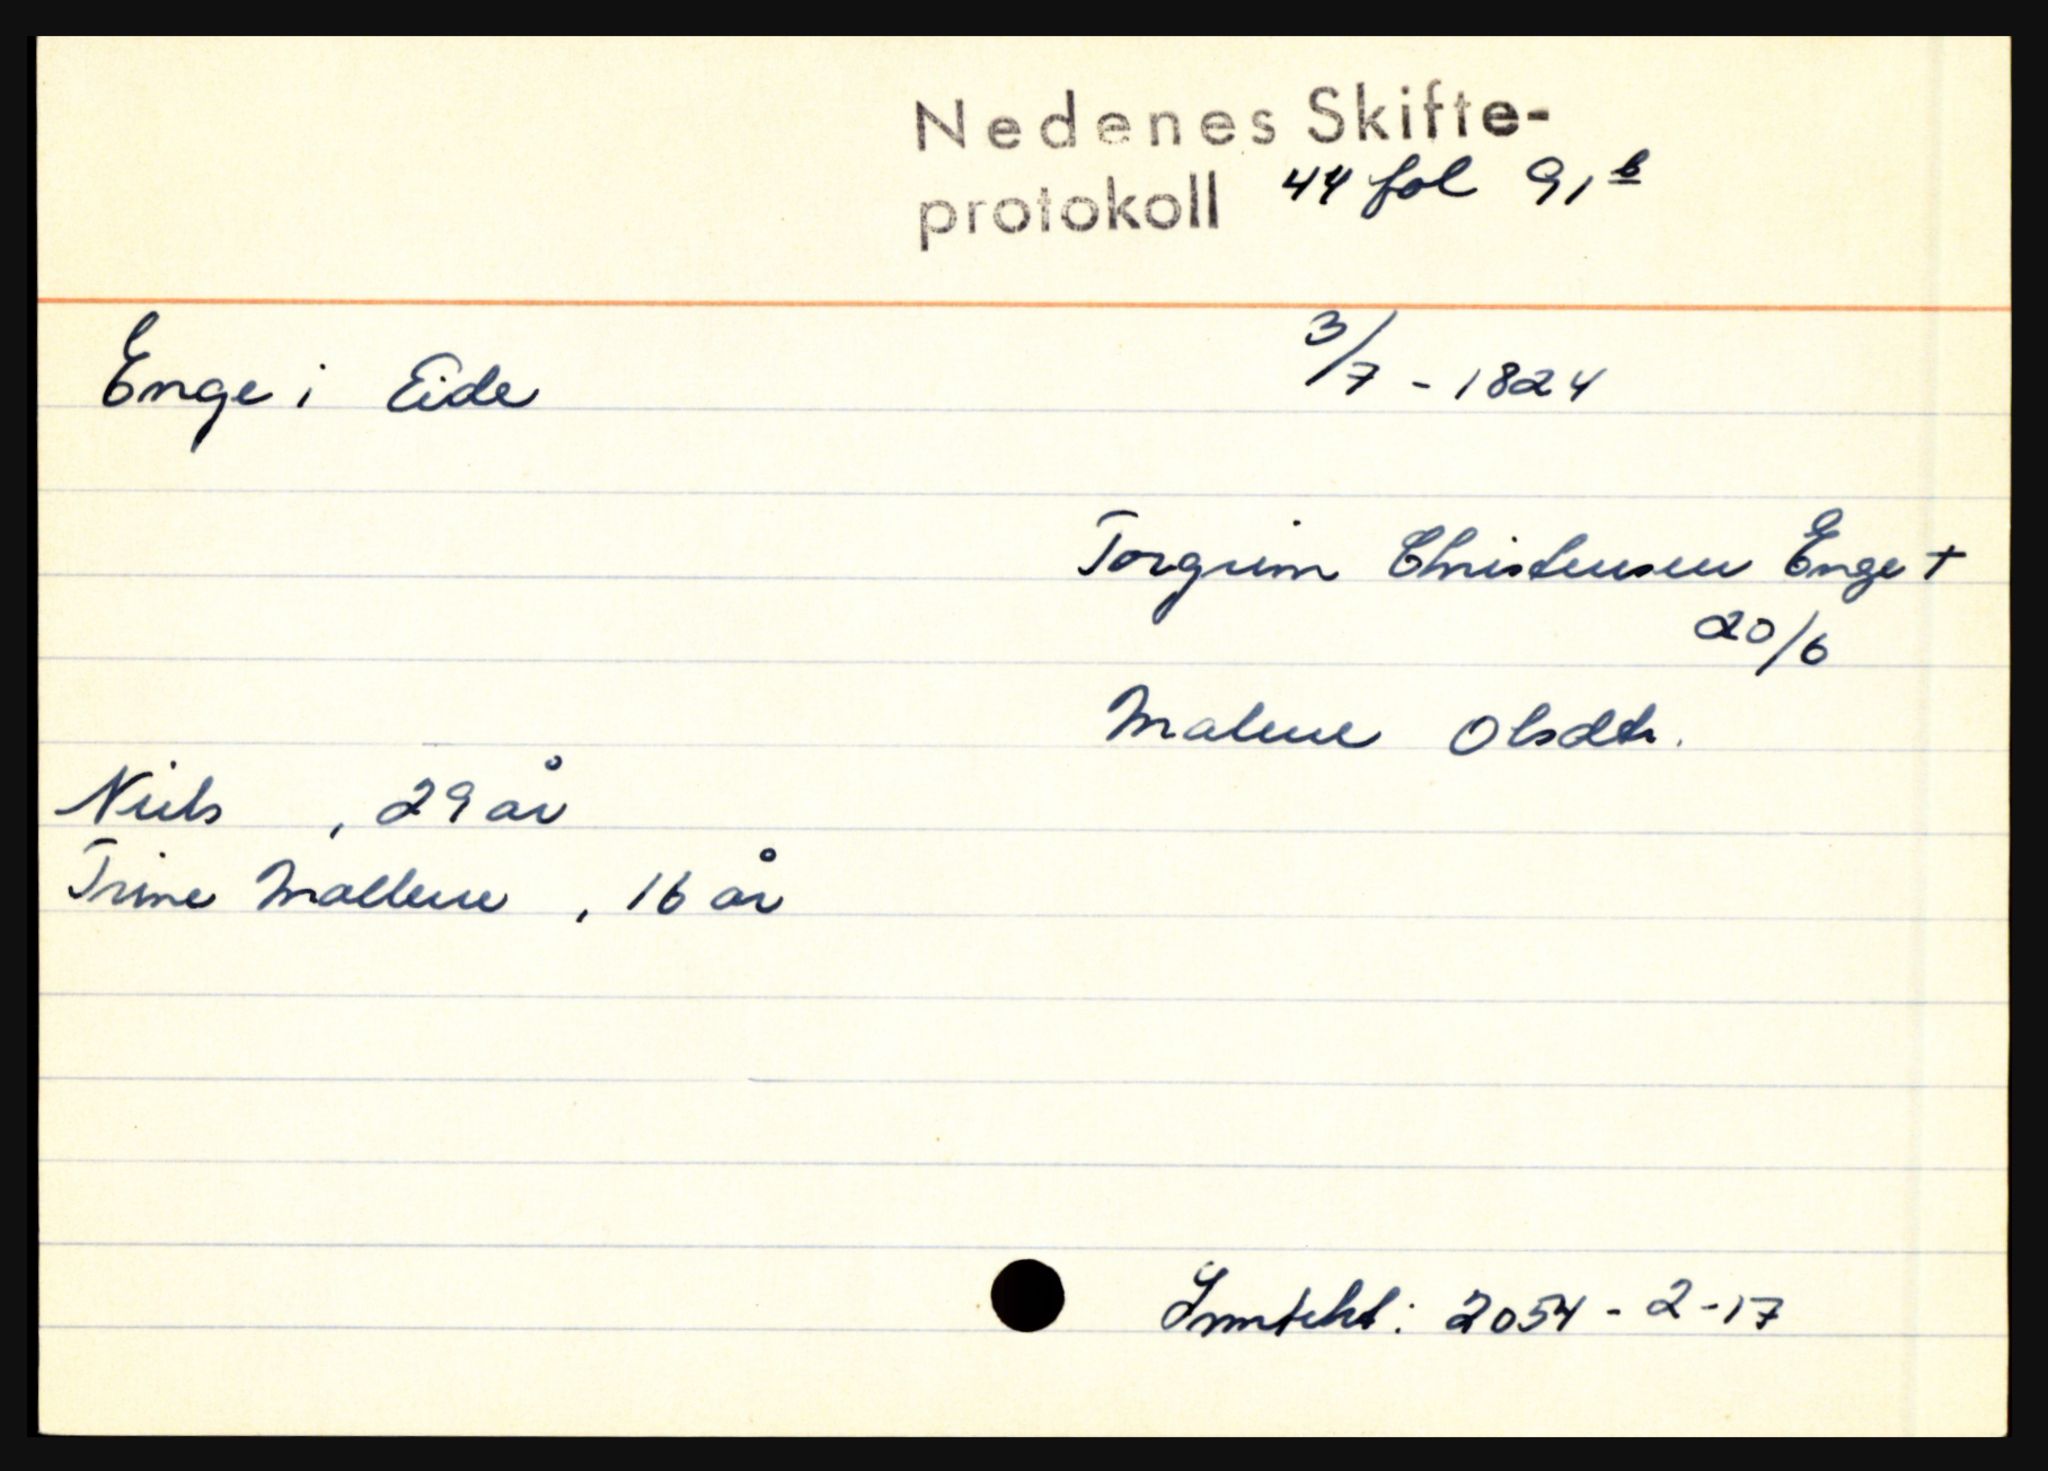 Nedenes Skifte-
protokoll 44 fol 91 b
Enge i Eide 3/7 - 1824
Torgrim Christensen Enge +
20/6
Malene Olsdtr.
Niels , 29 år
Trine Mallene , 16 år
Inntekt: 2054 - 2 - 17